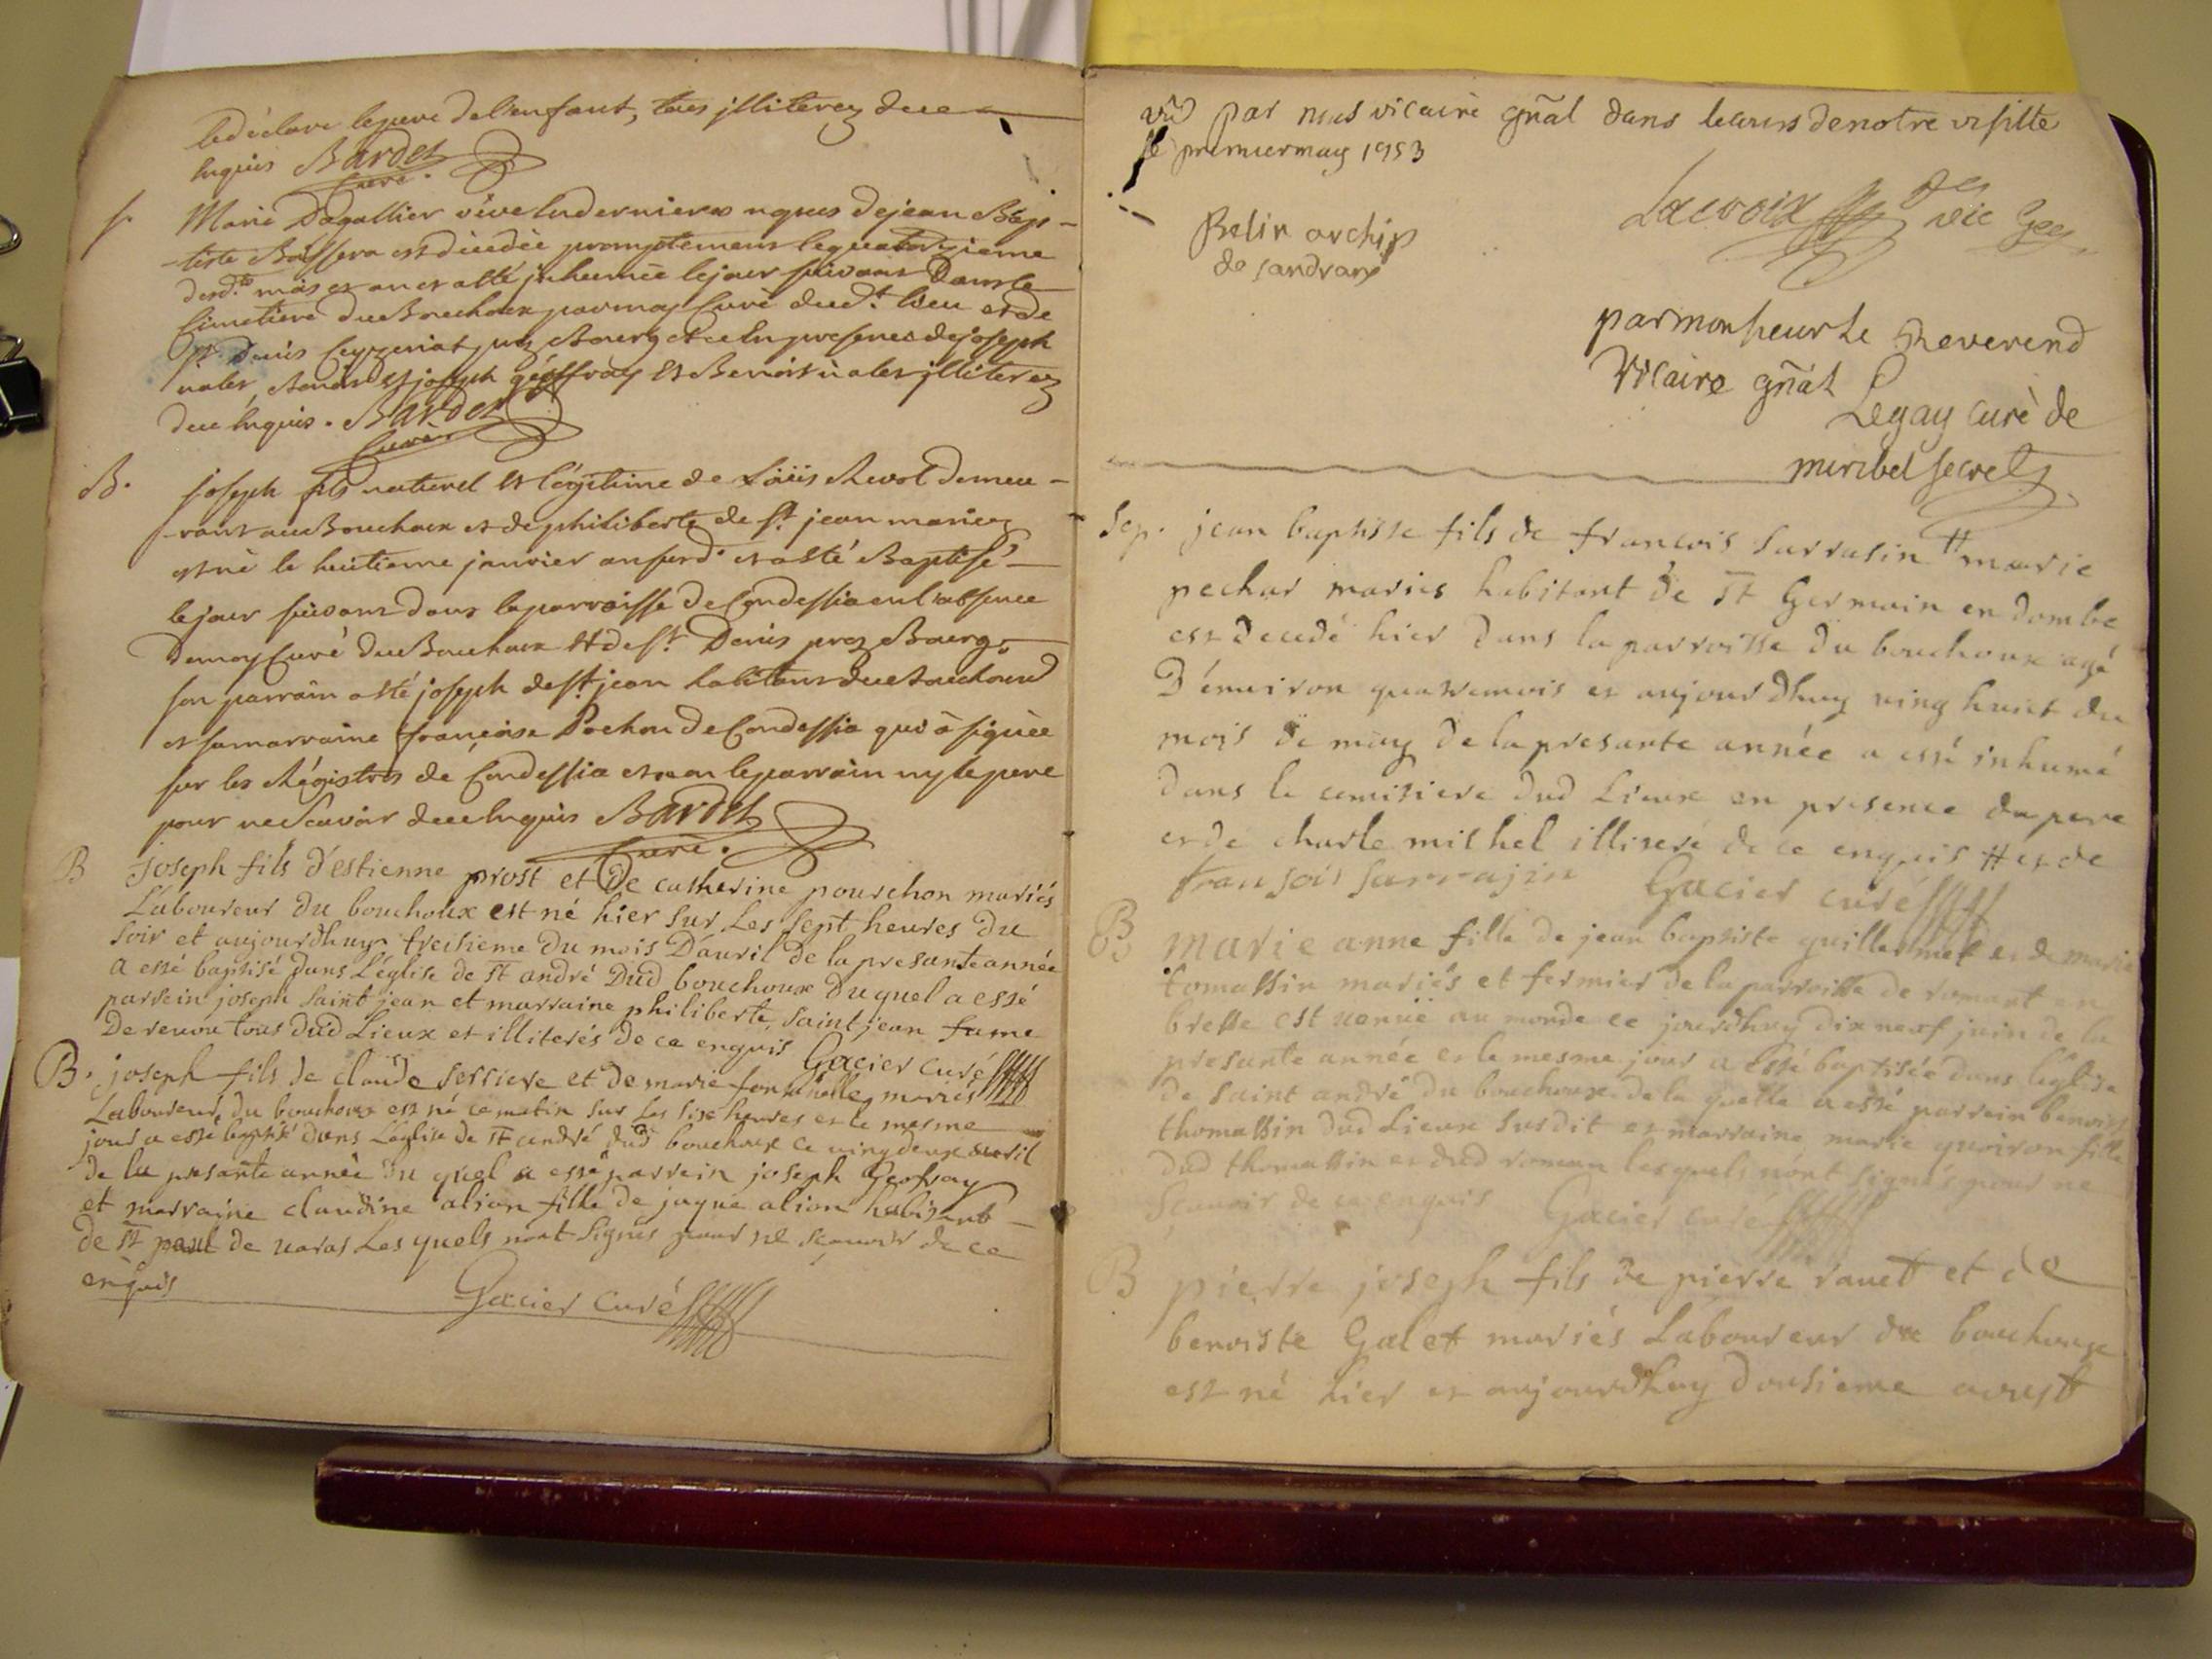 led'éclare lepere del'enfant, tous jlliterez de ce
Enquis Bardet
Curé.
S. Marie Dagallier véve Endernieres nopces dejean Bap-
-tiste Buffera est décédée promptement lequatorzieme
desd.ts mois et an et a esté jnhumée lejour suivant Dans le
Cimetiere du Bouchoux par moy Curé dud.t lieu et de
St. Denis Ceyzeriat prez Bourg et ce En presence de joseph
joseph géoffray Et Benoist jlliterez
de ce Enquis. Bardet
Curé.
B. joseph fils naturel Et légitime de Loüis Revol demeu-
-rant au Bouchoux et de philiberte de St. jean mariez
est né le huitieme janvier an susd. et a esté Baptisé
le jour suivant dans la parroisse de Condessia en l'absence
de moy Curé du Bouchoux Et de St. Denis prez Bourg
son parrain a esté joseph de St. jean habitant du Bouchoux
et sa marraine françoise Pochon de Condessia qui à signée
sur les Régistres de Condessia et non le parrain ny le pere
pour ne Scavoir de ce Enquis Bardet
Curé.
B Joseph fils d'estienne prost et de catherine pourchon mariés
Laboureur du bouchoux est né hier sur Les sept heures du
soir et aujourdhuy treisieme du mois D'avril de la presante année
a essé baptisé dans L'église de st andré Dud bouchoux duquel a essé
parrein joseph saint jean et marraine philiberte saint jean fame
De revou tous dud Lieux et illiterés de ce enquis Gacier curé
B. joseph fils de claude ferriere et de marie mariés
Laboureur du bouchoux est né ce matin sur Les sixe heures et le mesme
jour a essé baptisé dans L'église de st andré dud bouchoux ce vingdeux avril
de la presante année du quel a essé parrein joseph Geofray
et marraine claudine alion fille de jaque alion habitant
de st paul de varas Les quels nont signés pour ne scavoir de ce
enquis Gacier curé
vû par nous vicaire gñal dans lecours de notre visitte
le premier may 1753
Lacroix vic gen
Belin archip
de sandrans
par monsieur le Reverend
Vicaire gñal
Legay curé de
miribel secret
Sep. jean baptiste fils de francois sarrasin tt marie
pechar mariés habitant de st Germain en dombe
est decedé hier dans la parroisse du bouchoux agé
D'environ quatremois et aujourdhuy ving huict du
mois de may de la presante année a essé inhumé
dans le cemitiere dud Lieux en presence du pere
et de charle mishel illiteré de ce enquis tt et de
fransois sarrajin Gacier curé
B marie anne fille de jean baptiste guillermet et de marie
tomassin mariés et fermier de la parroisse de romant en
bresse est venuë au monde ce jourdhuy dix neuf juin de la
presante année et le mesme jour a essé baptisée dans léglise
de saint andré du bouchoux de la quelle a essé parrein benoist
thomassin dud Lieux susdit et marraine marie quoiron fille
dud thomassin et dud roman lesquels nont signés pour ne
scavoir de ce enquis Gacier curé
B pierre joseph fils de pierre ravet et de
benoiste Galet mariés Laboureur du bouchoux
est né hier et aujourdhuy dousieme aoust